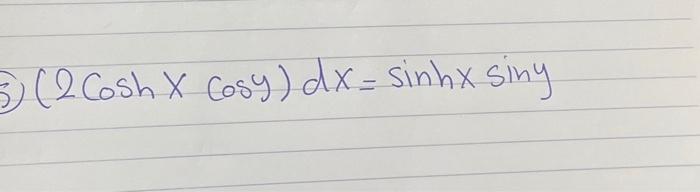 5) (2 Cosh x Cosy) dx = sinhx siny